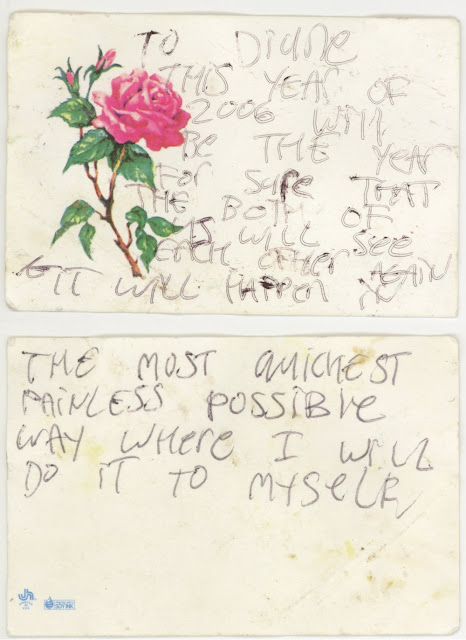 TO Diane
THIS YEAR OF
2006 Will
Be THE YEAR
FOr Sure THAT
THE BOTH OF
US WILL See
EACH OTHER AGAIN
IT WILL HAPPEN IN
THE MOST QUICKEST
PAINLESS POSSIBLe
WAY WHere I WILL
DO IT TO MYSELF